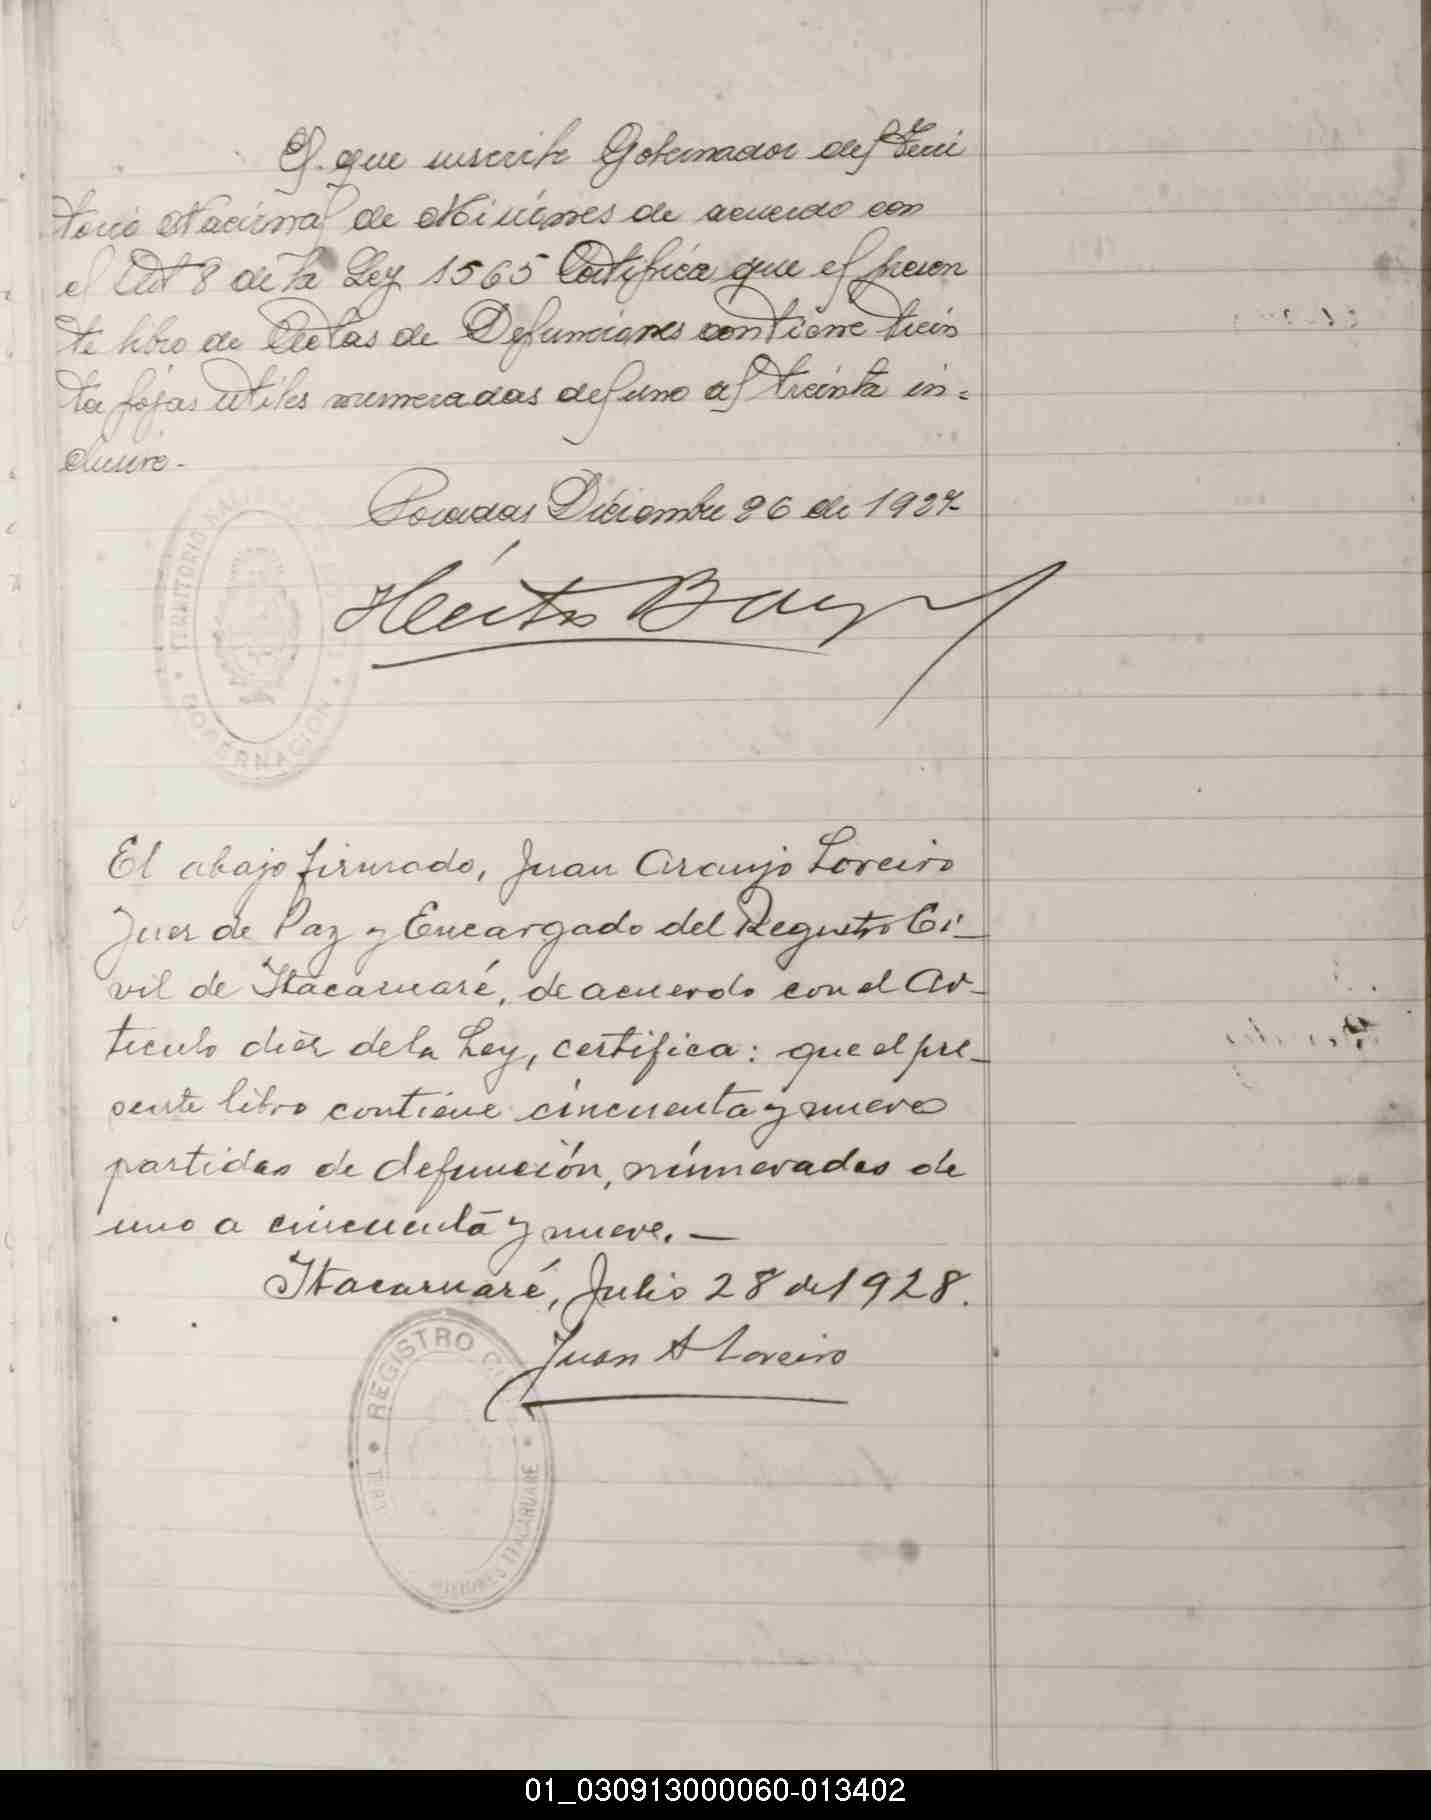 El que suscribe Gobernador del Terri
torio Nacional de Misiones de acuerdo con
el Art 8 de la Ley 1565 Certifica que el presen
te libro de Actas de Defunciones contiene trein
ta fojas utiles numeradas del uno al treinta in=
clusive.-
Posadas Diciembre 26 de 1927-
Héctor Bar
TERRITORIO NA
GOBERNACION
El abajo firmado, Juan Araujo Loreiro
Juez de Paz y Encargado del Registro Ci-
vil de Itacaruaré, de acuerdo con el Ar-
ticulo diez de la Ley, certifica: que el pre-
sente libro contiene cincuenta y nueve
partidas de defunción, númeradas de
uno a cincuenta y nueve.-
Itacaruaré, Julio 28 de 1928.
Juan A Loreiro
REGISTRO C
MISIONES ITACARUARE
01_030913000060-013402